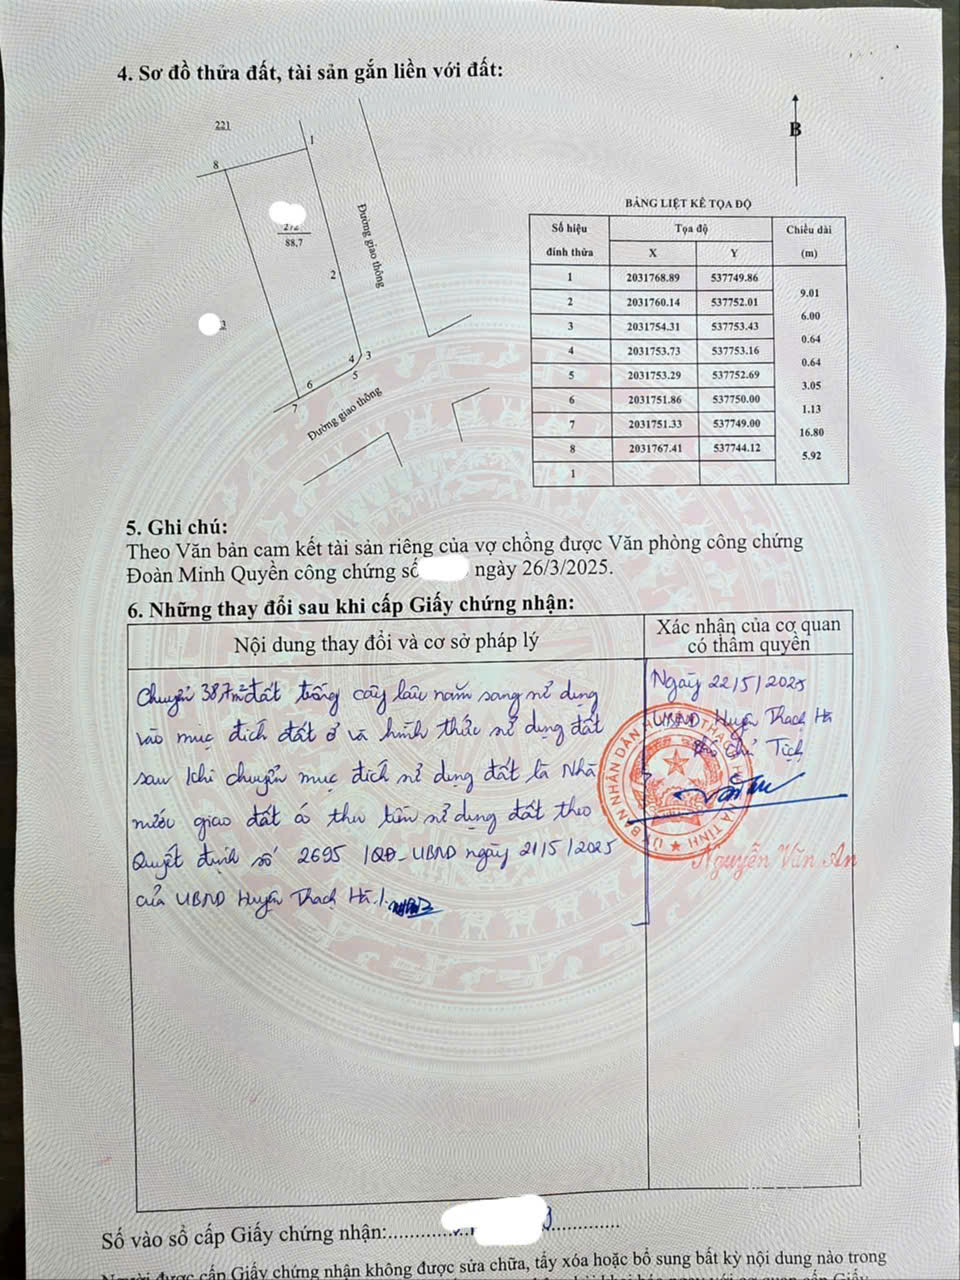 4. Sơ đồ thửa đất, tài sản gắn liền với đất:
221
1
8
B
88,7
Đường giao thông
2
4 3
5
6
7
Đường giao thông
BẢNG LIỆT KÊ TỌA ĐỘ
Số hiệu đỉnh thửa Tọa độ Chiều dài (m)
X Y
1 2031768.89 537749.86
9.01
2 2031760.14 537752.01
6.00
3 2031754.31 537753.43
0.64
4 2031753.73 537753.16
0.64
5 2031753.29 537752.69
3.05
6 2031751.86 537750.00
1.13
7 2031751.33 537749.00
16.80
8 2031767.41 537744.12
5.92
1
5. Ghi chú:
Theo Văn bản cam kết tài sản riêng của vợ chồng được Văn phòng công chứng
Đoàn Minh Quyền công chứng số ngày 26/3/2025.
6. Những thay đổi sau khi cấp Giấy chứng nhận:
Nội dung thay đổi và cơ sở pháp lý
Xác nhận của cơ quan
có thẩm quyền
Chuyển 38,7m² đất trồng cây lâu năm sang sử dụng
vào mục đích đất ở và hình thức sử dụng đất
sau khi chuyển mục đích sử dụng đất là Nhà
nước giao đất có thu tiền sử dụng đất theo
Quyết định số 2695 /QĐ-UBND ngày 21/5/2025
của UBND Huyện Thạch Hà./.
Ngày 22/5/2025
UBND Huyện Thạch Hà
Phó Chủ Tịch
ỦY BAN NHÂN DÂN
Nguyễn Văn An
Số vào sổ cấp Giấy chứng nhận:
Người được cấp Giấy chứng nhận không được sửa chữa, tẩy xóa hoặc bổ sung bất kỳ nội dung nào trong